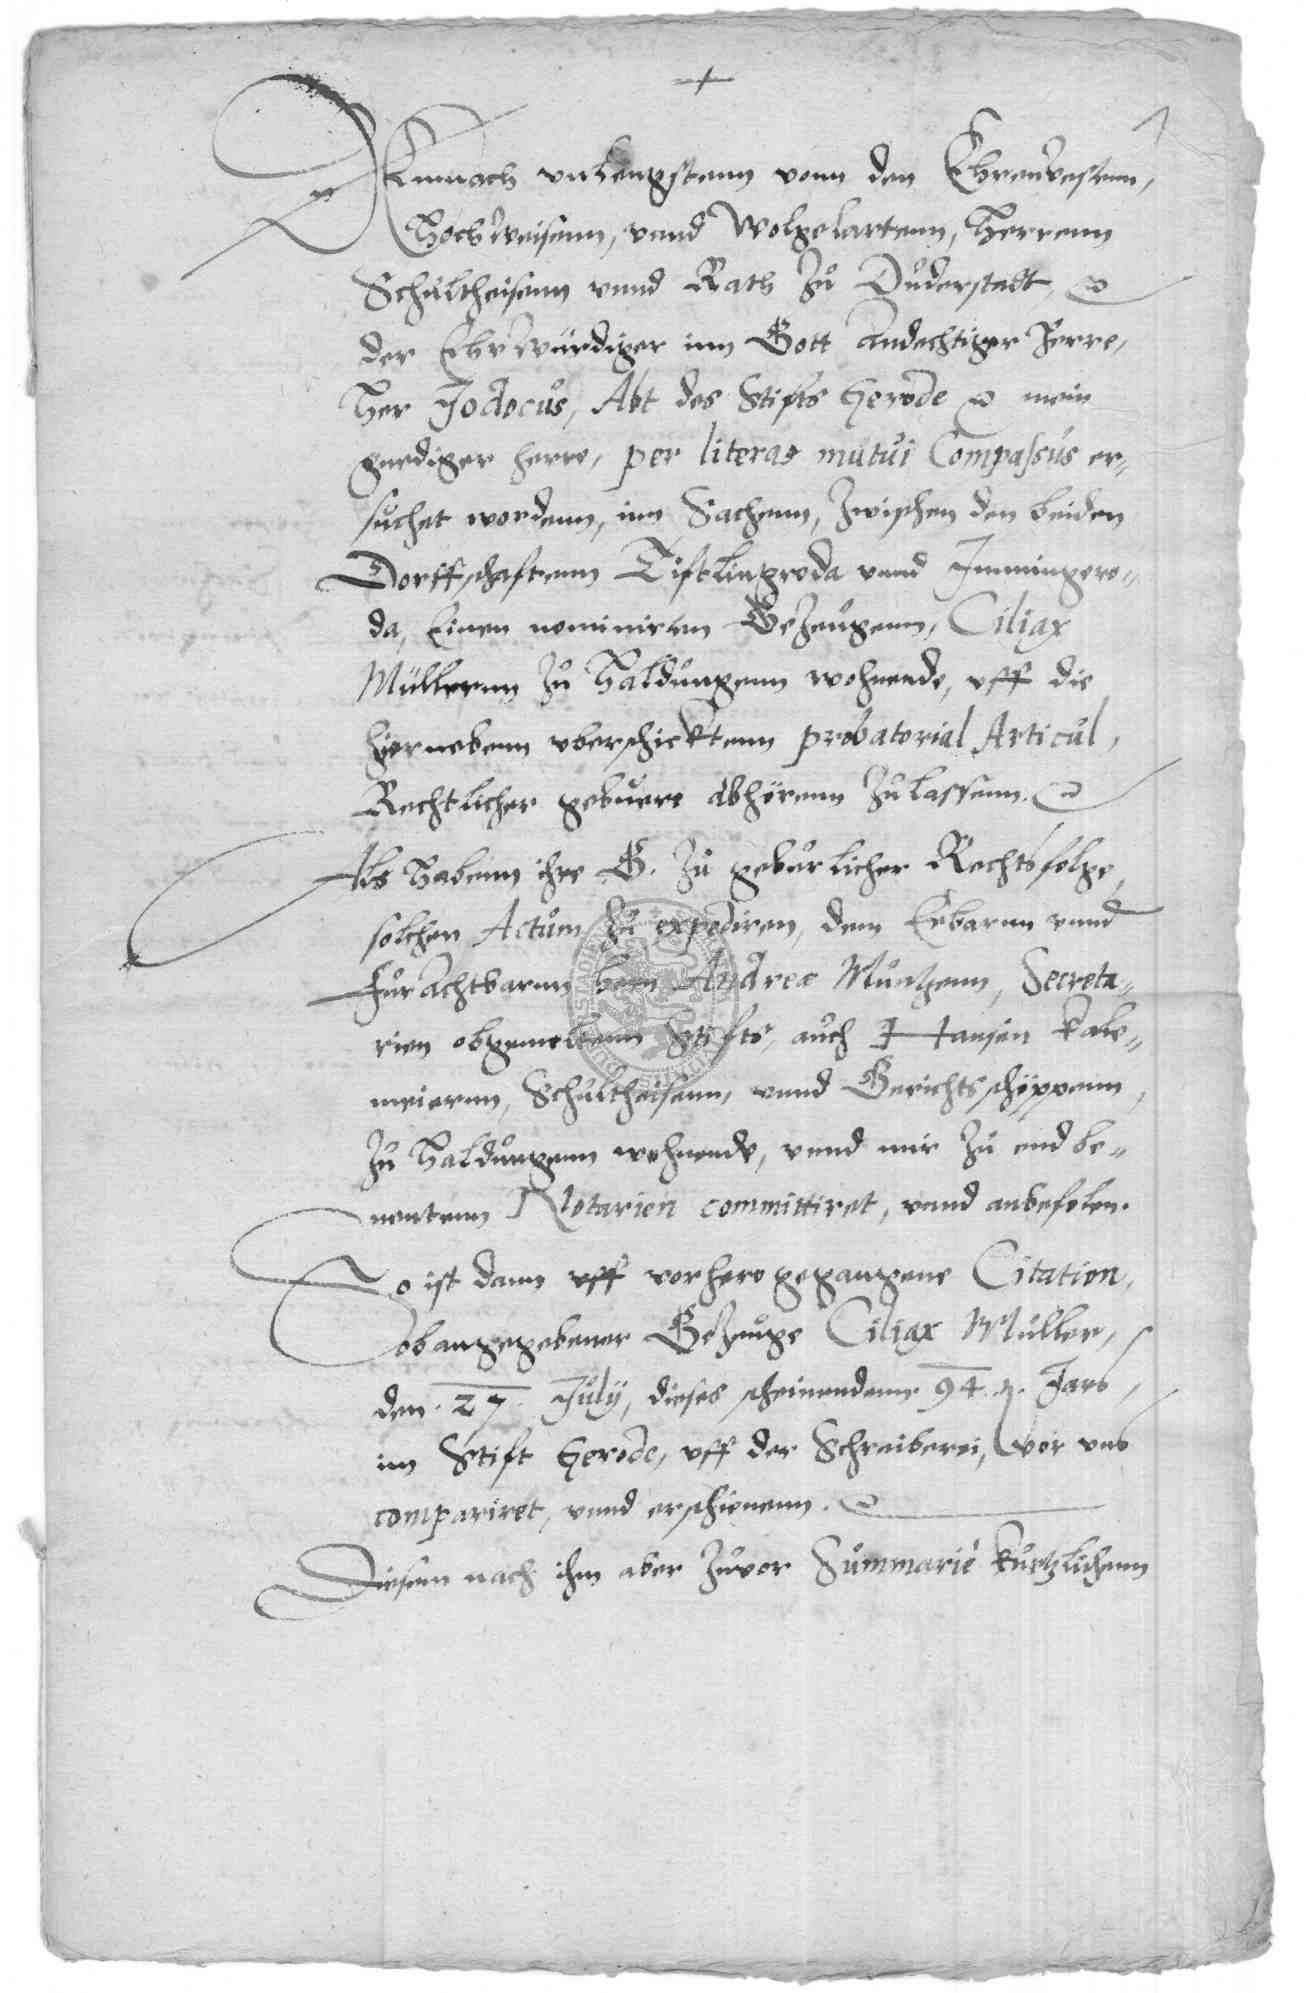 +
1
Demnach vnlengstenn vonn den Ehrnvestenn,
Hochweisenn, vnnd Wolgelartenn, Herrenn
Schultheisenn vnnd Rath zu Duderstadt,
der Ehrwürdiger inn Gott Andechtiger Herre,
Her Jodocus, Abt des Stifts Gerode mein
gnediger herre, per literas mutui Compassus er„
suchet wordenn, inn Sachenn, zwischen den beiden
Dorffschaftenn Tiftlingroda vnnd Immingero„
da, Einen nominirten Gezeugenn, Ciliax
Müllernn zu Haldungenn wohnende, vff die
hiernebenn vberschicktenn probatorial Articul,
Rechtlicher gebuere abhörenn zulassenn.
Als habenn ihre G. zu geburlicher Rechtsfolge,
solchen Actum zu expediren, dem Erbarnn vnnd
Fürachtbarnn hern Andreæ Müntzenn, Secreta„
rien obgemeltenn Stifts, auch Hansen Kale„
meiernn, Schultheisenn, vnnd Gerichtsschöppenn,
zu Haldungenn wohnende, vnnd mir zu end be„
nentenn Notarien committiret, vnnd anbefolen.
So ist dann vff vorhero gegangene Citation,
obangegebener Gezeuge Ciliax Müller,
den 27. July, dieses scheinendenn 94. Jars,
im Stift Gerode, vff der Schreiberei, vor vns
compariret, vnnd erschienenn.
Diesem nach ihm aber zuvor Summarie kurtzlichenn